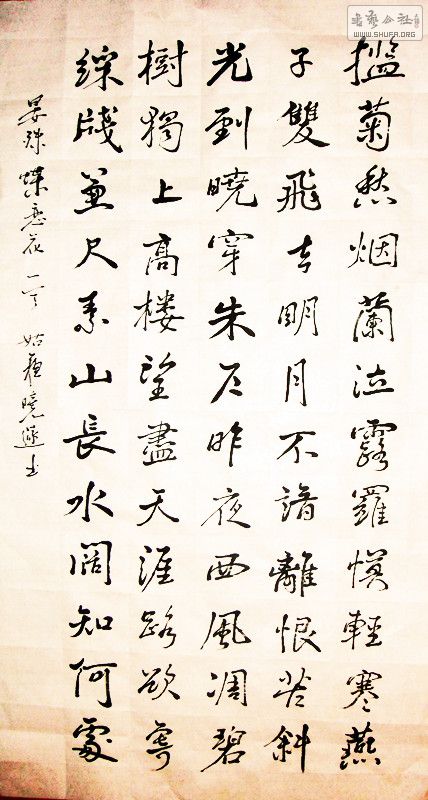 書藝公社
WWW.SHUFA.ORG
槛菊愁烟蘭泣露羅幙輕寒燕
子雙飛去明月不諳離恨苦斜
光到曉穿朱户昨夜西風凋碧
樹獨上高樓望盡天涯路欲寄
綵牋兼尺素山長水闊知何處
晏殊蝶恋花一首 姑蘇曉书